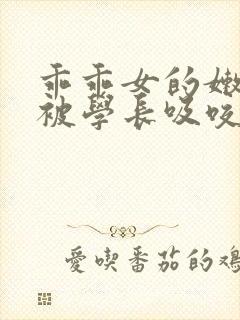 乖乖女的嫩
被學長吸咬
愛喫番茄的